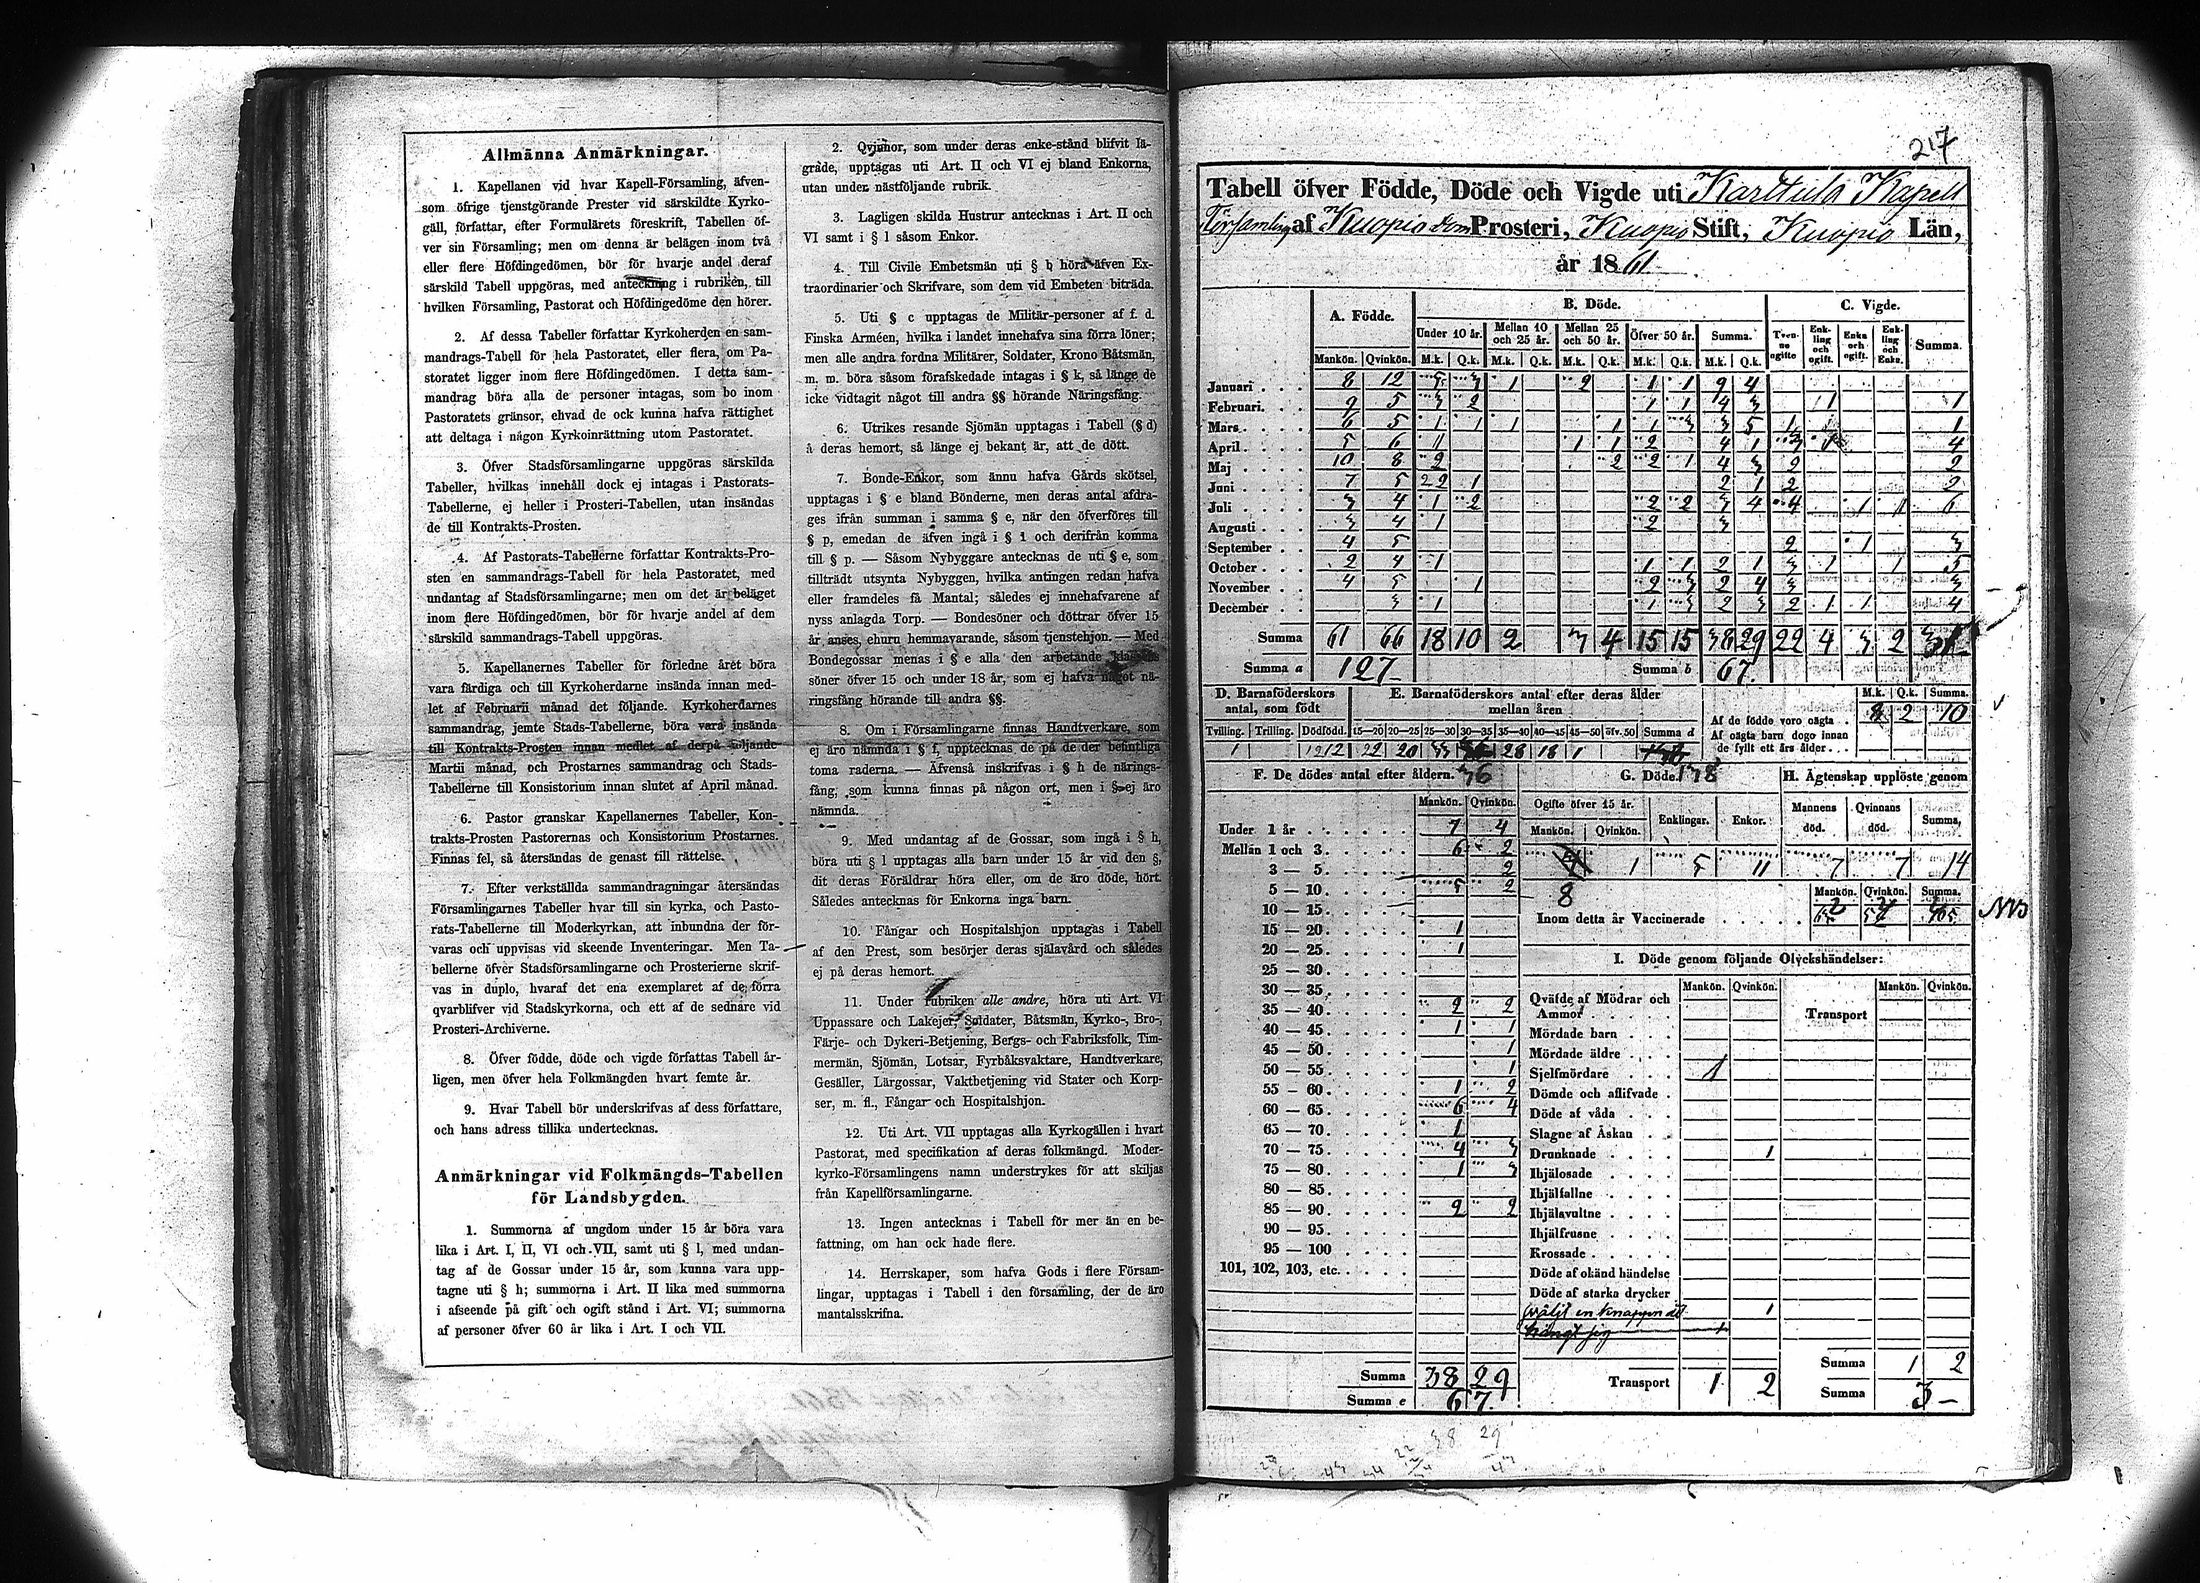 Allmänna Anmärkningar.
1. Kapellanen vid hvar Kapell-Församling, äfven-
som öfrige tjenstgörande Prester vid särskildte Kyrko-
gäll, författar, efter Formulärets föreskrift, Tabellen öf-
ver sin Församling; men om denna är belägen inom två
eller flere Höfdingedömen, bör för hvarje andel deraf
särskild Tabell uppgöras, med anteckning i rubriken, till
hvilken Församling, Pastorat och Höfdingedöme den hörer.
2. Af dessa Tabeller författar Kyrkoherden en sam-
mandrags-Tabell för hela Pastoratet, eller flera, om Pa-
storatet ligger inom flere Höfdingedömen. I detta sam-
mandrag böra alla de personer intagas, som bo inom
Pastoratets gränsor, ehvad de ock kunna hafva rättighet
att deltaga i någon Kyrkoinrättning utom Pastoratet.
3. Öfver Stadsförsamlingarne uppgöras särskilda
Tabeller, hvilkas innehåll dock ej intagas i Pastorats-
Tabellerne, ej heller i Prosteri-Tabellen, utan insändas
de till Kontrakts-Prosten.
4. Af Pastorats-Tabellerne författar Kontrakts-Pro-
sten en sammandrags-Tabell för hela Pastoratet, med
undantag af Stadsförsamlingarne; men om det är beläget
inom flere Höfdingedömen, bör för hvarje andel af dem
särskild sammandrags-Tabell uppgöras.
5. Kapellanernes Tabeller för förledne året böra
vara färdiga och till Kyrkoherdarne insända innan med-
let af Februarii månad det följande. Kyrkoherdarnes
sammandrag, jemte Stads-Tabellerne, böra vara insända
till Kontrakts-Prosten innan medlet af derpå följande
Martii månad, och Prostarnes sammandrag och Stads-
Tabellerne till Konsistorium innan slutet af April månad.
6. Pastor granskar Kapellanernes Tabeller, Kon-
trakts-Prosten Pastorernas och Konsistorium Prostarnes.
Finnas fel, så återsändas de genast till rättelse.
7. Efter verkställda sammandragningar återsändas
Församlingarnes Tabeller hvar till sin kyrka, och Pasto-
rats-Tabellerne till Moderkyrkan, att inbundna der för-
varas och uppvisas vid skeende Inventeringar. Men Ta-
bellerne öfver Stadsförsamlingarne och Prosterierne skrif-
vas in duplo, hvaraf det ena exemplaret af de förra
qvarblifver vid Stadskyrkorna, och ett af de sednare vid
Prosteri-Archiverne.
8. Öfver födde, döde och vigde författas Tabell år-
ligen, men öfver hela Folkmängden hvart femte år.
9. Hvar Tabell bör underskrifvas af dess författare,
och hans adress tillika undertecknas.
Anmärkningar vid Folkmängds-Tabellen
för Landsbygden.
1. Summorna af ungdom under 15 år böra vara
lika i Art. I, II, VI och VII, samt uti § l, med undan-
tag af de Gossar under 15 år, som kunna vara upp-
tagne uti § h; summorna i Art. II lika med summorna
i afseende på gift och ogift stånd i Art. VI; summorna
af personer öfver 60 år lika i Art. I och VII.
2. Qvinnor, som under deras enke-stånd blifvit lä-
grade, upptagas uti Art. II och VI ej bland Enkorna,
utan under nästföljande rubrik.
3. Lagligen skilda Hustrur antecknas i Art. II och
VI samt i § l såsom Enkor.
4. Till Civile Embetsmän uti § b höra äfven Ex-
traordinarier och Skrifvare, som dem vid Embeten biträda.
5. Uti § c upptagas de Militär-personer af f. d.
Finska Arméen, hvilka i landet innehafva sina förra löner;
men alle andra fordna Militärer, Soldater, Krono Båtsmän,
m. m. böra såsom förafskedade intagas i § k, så länge de
icke vidtagit något till andra §§ hörande Näringsfång.
6. Utrikes resande Sjömän upptagas i Tabell (§ d)
å deras hemort, så länge ej bekant är, att de dött.
7. Bonde-Enkor, som ännu hafva Gårds skötsel,
upptagas i § e bland Bönderne, men deras antal afdra-
ges ifrån summan i samma § e, när den öfverföres till
§ p, emedan de äfven ingå i § l och derifrån komma
till § p. — Såsom Nybyggare antecknas de uti § e, som
tillträdt utsynta Nybyggen, hvilka antingen redan hafva
eller framdeles få Mantal; således ej innehafvarene af
nyss anlagda Torp. — Bondesöner och döttrar öfver 15
år anses, ehuru hemmavarande, såsom tjenstehjon. — Med
Bondegossar menas i § e alla den arbetande klassens
söner öfver 15 och under 18 år, som ej hafva något nä-
ringsfång hörande till andra §§.
8. Om i Församlingarne finnas Handtverkare, som
ej äro nämnda i § f, upptecknas de på de der befintliga
toma raderna. — Äfvenså inskrifvas i § h de närings-
fång, som kunna finnas på någon ort, men i § ej äro
nämnda.
9. Med undantag af de Gossar, som ingå i § h,
böra uti § l upptagas alla barn under 15 år vid den §,
dit deras Föräldrar höra eller, om de äro döde, hört.
Således antecknas för Enkorna inga barn.
10. Fångar och Hospitalshjon upptagas i Tabell
af den Prest, som besörjer deras själavård och således
ej på deras hemort.
11. Under rubriken alle andre, höra uti Art. VI
Uppassare och Lakejer, Soldater, Båtsmän, Kyrko-, Bro-,
Färje- och Dykeri-Betjening, Bergs- och Fabriksfolk, Tim-
mermän, Sjömän, Lotsar, Fyrbåksvaktare, Handtverkare,
Gesäller, Lärgossar, Vaktbetjening vid Stater och Korp-
ser, m. fl., Fångar och Hospitalshjon.
12. Uti Art. VII upptagas alla Kyrkogällen i hvart
Pastorat, med specifikation af deras folkmängd. Moder-
kyrko-Församlingens namn understrykes för att skiljas
från Kapellförsamlingarne.
13. Ingen antecknas i Tabell för mer än en be-
fattning, om han ock hade flere.
14. Herrskaper, som hafva Gods i flere Försam-
lingar, upptagas i Tabell i den församling, der de äro
mantalsskrifna.
217
Tabell öfver Födde, Döde och Vigde uti Karttula Kapell
Församling af Kuopio Dom Prosteri, Kuopio Stift, Kuopio Län,
år 1861
A. Födde. B. Döde. C. Vigde.
Under 10 år. Mellan 10 och 25 år. Mellan 25 och 50 år. Öfver 50 år. Summa. Tvenne ogifte Enkling och ogift. Enka och ogift. Enkling och Enka. Summa.
Mankön. Qvinkön. M.k. Q.k. M.k. Q.k. M.k. Q.k. M.k. Q.k. M.k. Q.k.
Januari 8 12 5 3 1 2 1 1 9 4
Februari. 9 5 3 2 1 1 4 3 1 1
Mars 6 5 1 1 1 1 1 3 3 5 1 1
April 5 6 1 1 1 2 4 1 3 1 4
Maj 10 8 2 2 2 1 4 3 2 2
Juni 7 5 2 1 2 1 2 2
Juli 3 4 1 2 2 2 3 4 4 1 1 6
Augusti 3 4 1 2 3
September 4 5 2 1 3
October 2 4 1 1 1 2 1 3 1 1 5
November 4 5 1 2 3 2 4 3 3
December 3 1 1 3 2 3 2 1 1 4
Summa 61 66 18 10 2 3 4 15 15 38 29 22 4 3 2 31
Summa a 127 Summa b 67.
D. Barnaföderskors antal, som födt
E. Barnaföderskors antal efter deras ålder mellan åren
M.k. Q.k. Summa.
Af de födde voro oägta 8 2 10
Af oägta barn dogo innan de fyllt ett års ålder
Tvilling. Trilling. Dödfödd. 15—20 20—25 25—30 30—35 35—40 40—45 45—50 öfv. 50 Summa d
1 22 20 33 28 18 1
36 138
F. De dödes antal efter åldern.
G. Döde.
H. Ägtenskap upplöste genom
Mankön. Qvinkön.
Under 1 år 7 4
Mellan 1 och 3 6 2
3 — 5 2
5 — 10 5 2
10 — 15
15 — 20 1
20 — 25 1
25 — 30
30 — 35
35 — 40 2 2
40 — 45 1 1
45 — 50 1
50 — 55 1
55 — 60 1 2
60 — 65 6 4
65 — 70 1
70 — 75 4 3
75 — 80 1 3
80 — 85
85 — 90 2 2
90 — 95
95 — 100
101, 102, 103, etc.
Summa 38 29
Summa e 67.
Ogifte öfver 15 år. Enklingar. Enkor. Mannens död. Qvinnans död. Summa,
Mankön. Qvinkön.
8 1 5 11 7 7 14
Mankön. Qvinkön. Summa.
Inom detta år Vaccinerade
I. Döde genom följande Olyckshändelser:
Mankön. Qvinkön. Mankön. Qvinkön.
Qväfde af Mödrar och Ammor Transport
Mördade barn
Mördade äldre
Sjelfmördare 1
Dömde och aflifvade
Döde af våda
Slagne af Åskan
Drunknade 1
Ihjälosade
Ihjälfallne
Ihjälsvultne
Ihjälfrusne
Krossade
Döde af okänd händelse
Döde af starka drycker
sväljt en knappnål 1
hängt sig 1
Transport 1 2 Summa 1 2
Summa 3
38 29